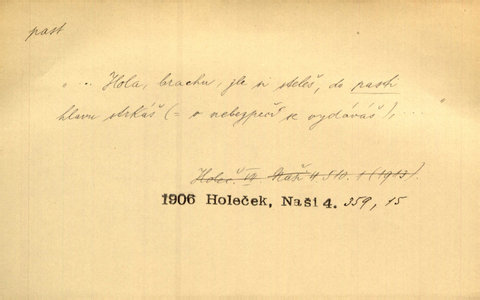 past
"... Hola, brachu, zle si steleš, do pasti
hlavu strkáš (= v nebezpečí se vydáváš), ... "
Holeč. IV Naši II 510. 1 (1913).
1906 Holeček, Naši 4. 359, 15